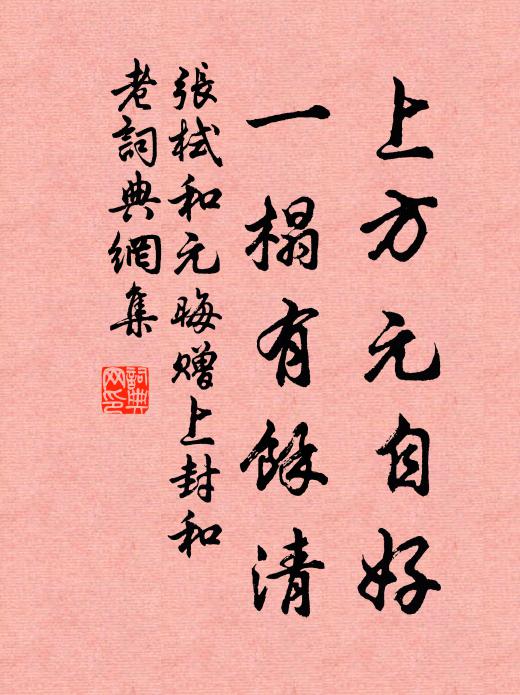 上方元自好
一榻有餘清
張栻和元晦贈上封和
老詞典網集
詞典
网印